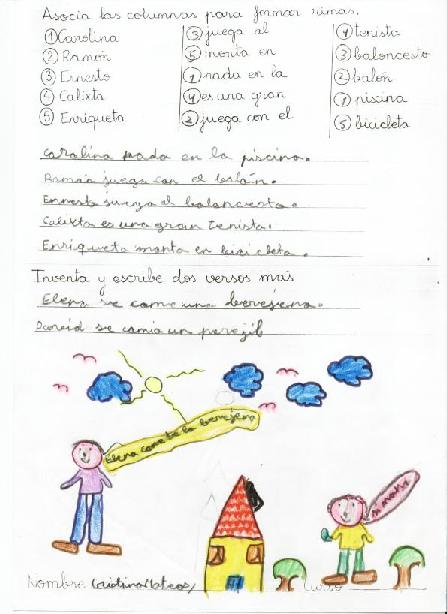 Asocia las columnas para formar rimas.
① Carolina ③ juega al ④ tenista
② Ramón ⑤ monta en ③ baloncesto
③ Ernesto ① nada en la ② balón
④ Calixta ④ es una gran ① piscina
⑤ Enriqueta ② juega con el ⑤ bicicleta
Carolina nada en la piscina.
Ramón juega con el balón.
Ernesto juega al baloncesto.
Calixta es una gran tenista.
Enriqueta monta en bicicleta.
Inventa y escribe dos versos más
Elena se come una berejena.
David se comia un perejil
Elena come te la berejena
Nombre Cristina Mateos Curso